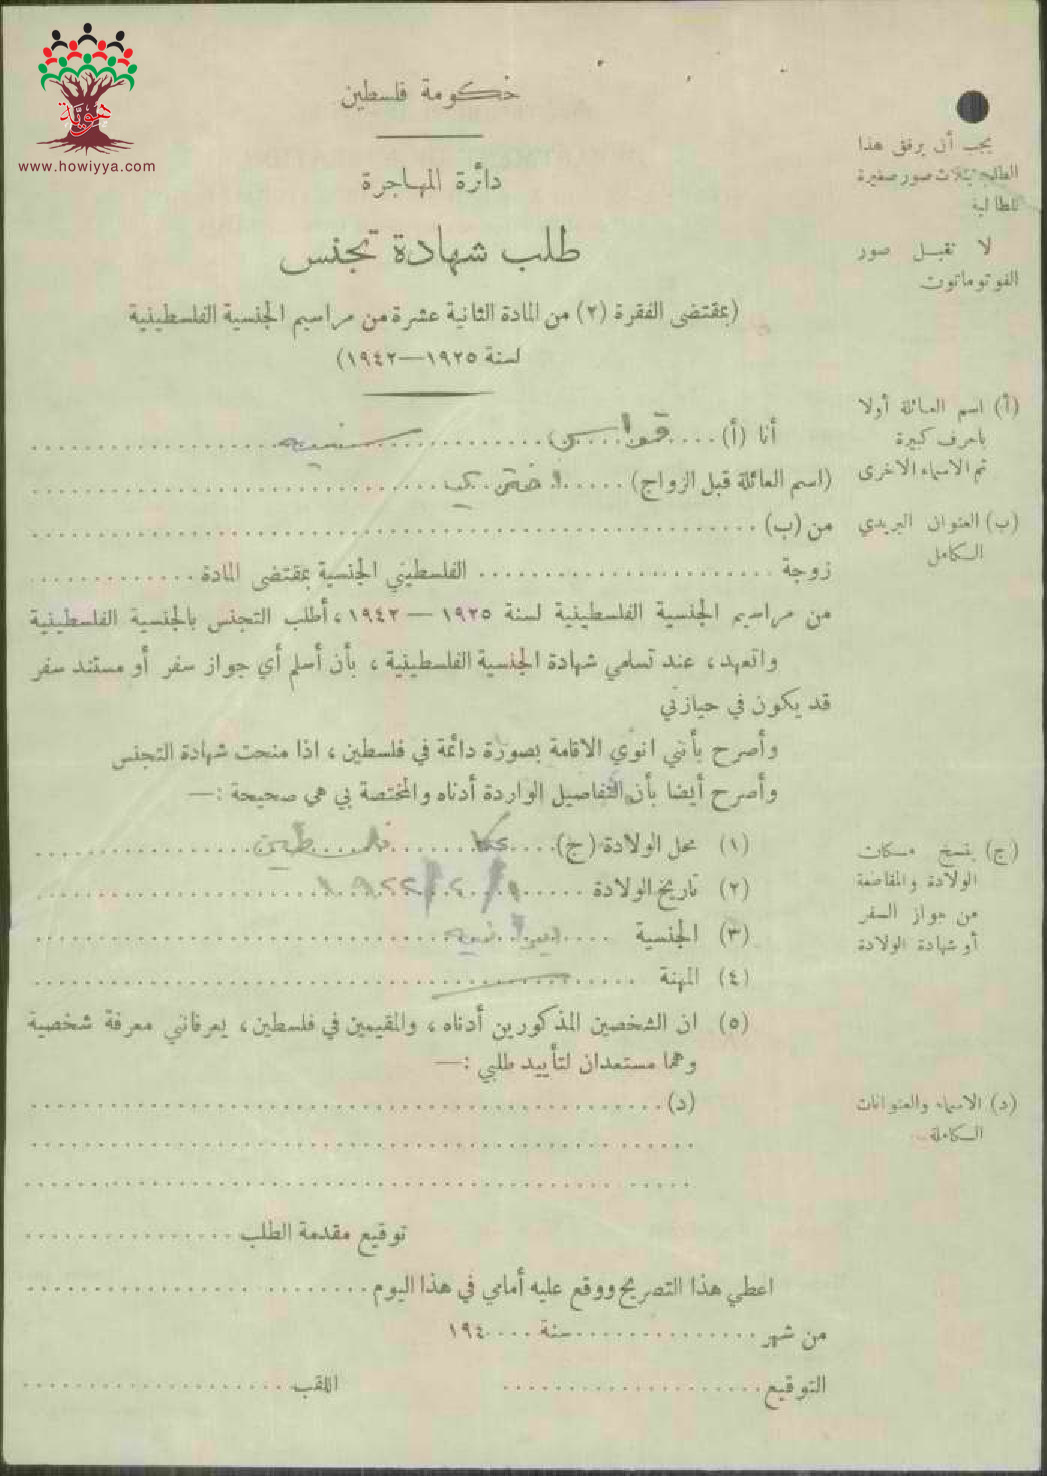 هوية
www.howiyya.com
حكومة فلسطين
دائرة المهاجرة
طلب شهادة تجنس
(بمقتضى الفقرة (٢) من المادة الثانية عشرة من مراسيم الجنسية الفلسطينية
لسنة ١٩٢٥—١٩٤٢)
يجب أن يرفق هذا
الطلب بثلاث صور صغيرة
للطالبة
لا تقبل صور
الفوتوماتون
أنا (أ) .... قواس سنيه
(اسم العائلة قبل الزواج) ....
من (ب) ....
زوجة .... الفلسطيني الجنسية بمقتضى المادة ....
من مراسيم الجنسية الفلسطينية لسنة ١٩٢٥ — ١٩٤٢، أطلب التجنس بالجنسية الفلسطينية
واتعهد، عند تسلمي شهادة الجنسية الفلسطينية، بأن أسلم أي جواز سفر أو مستند سفر
قد يكون في حيازتي
وأصرح بأنني انوي الاقامة بصورة دائمة في فلسطين، اذا منحت شهادة التجنس
وأصرح أيضا بأن التفاصيل الواردة أدناه والمختصة بي هي صحيحة :—
(١) محل الولادة (ج) .... عكا فلسطين
(٢) تاريخ الولادة ....
(٣) الجنسية .... ايرانيه
(٤) المهنة ....
(٥) ان الشخصين المذكورين أدناه، والمقيمين في فلسطين، يعرفانني معرفة شخصية
وهما مستعدان لتأييد طلبي :—
(د) ....
توقيع مقدمة الطلب ....
اعطي هذا التصريح ووقع عليه أمامي في هذا اليوم ....
من شهر .... سنة .... ١٩٤٠
التوقيع .... اللقب ....
(أ) اسم العائلة أولا
باحرف كبيرة
ثم الاسماء الاخرى
(ب) العنوان البريدي
الكامل
(ج) ينسخ مكان
الولادة والمقاطعة
من جواز السفر
أو شهادة الولادة
(د) الاسماء والعنوانات
الكاملة